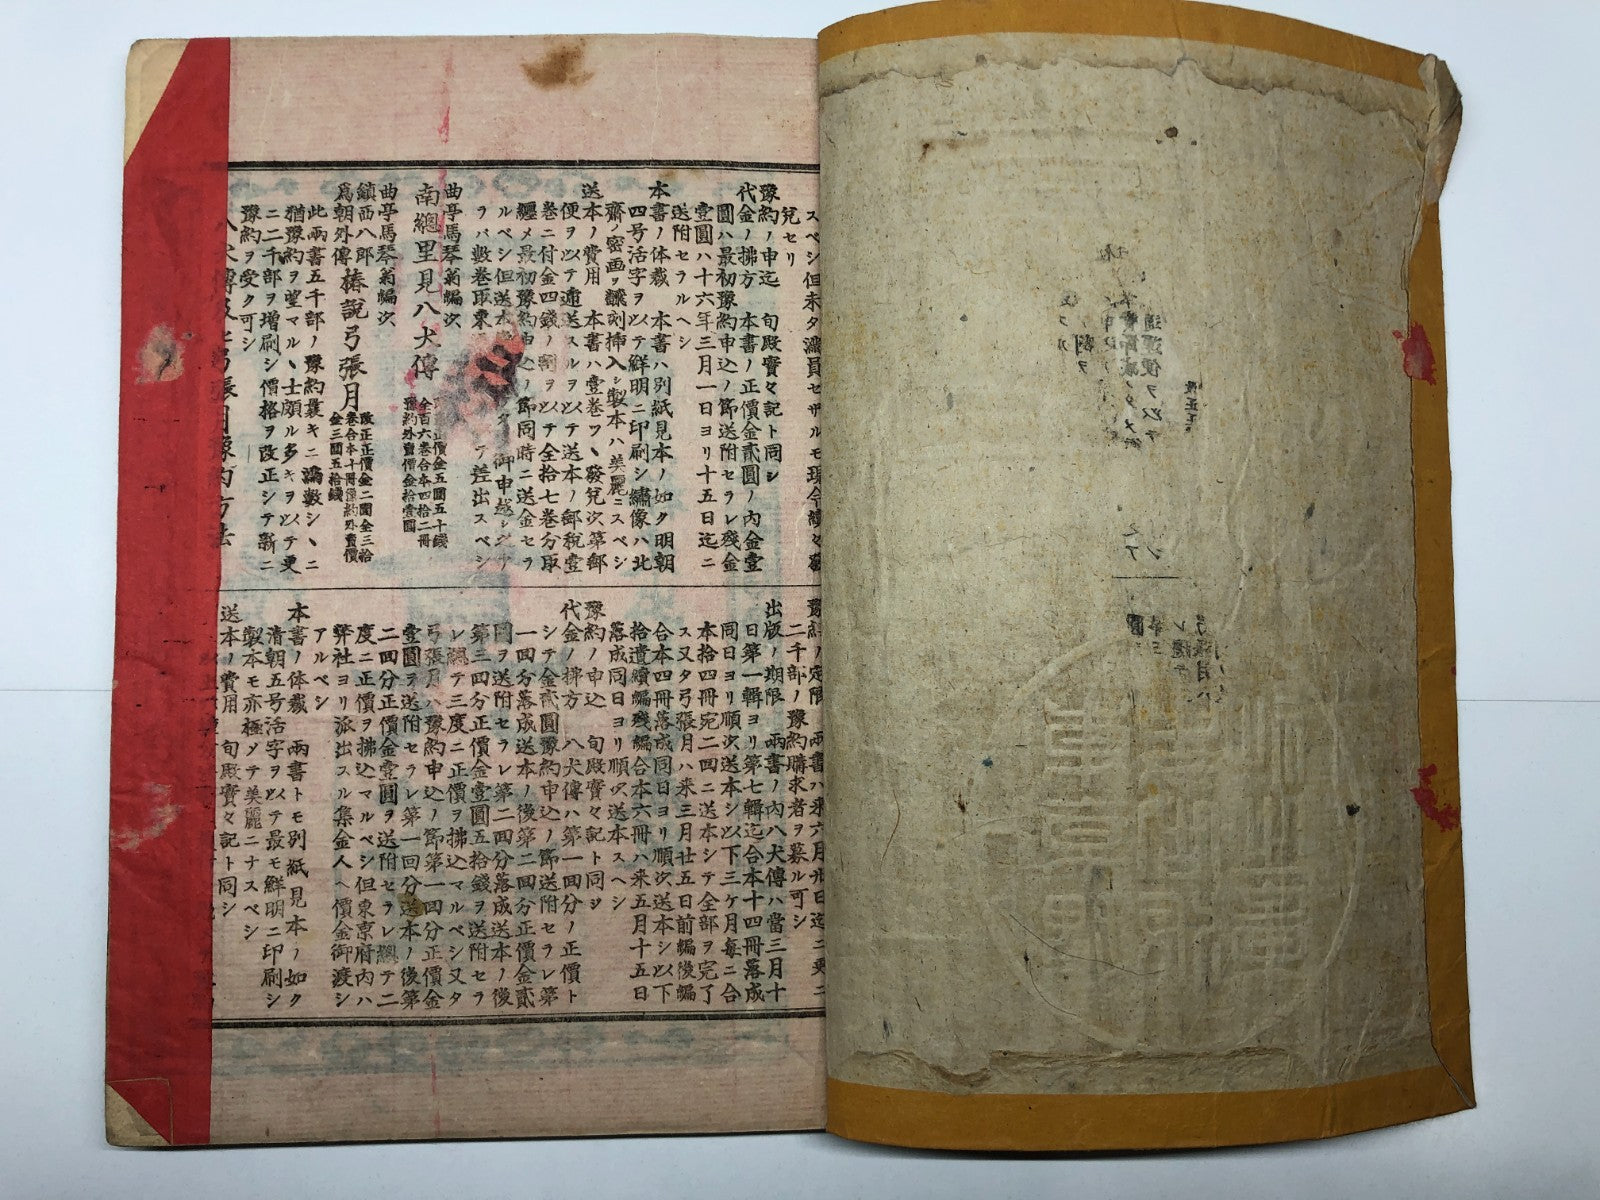 スベシ但未タ滿員セザルモ現今續々發
兌セリ
豫約ノ申込　旬殿實々記ト同シ
代金ノ拂方　本書ノ正價金貳圓ノ内金壹
圓ハ最初豫約申込ノ節送附セラレ殘金
壹圓ハ十六年三月一日ヨリ十五日迄ニ
送附セラルヘシ
本書ノ体裁　本書ハ別紙見本ノ如ク明朝
四号活字ヲ以テ鮮明ニ印刷シ繡像ハ北
齋ノ密画ヲ飜刻挿入シ製本ハ美麗ニスベシ
送本ノ費用　本書ハ壹巻ツヽ發兌次第郵
便ヲ以テ遞送スルヲ以テ送本ノ郵税壹
巻ニ付金四錢ノ割ヲ以テ全拾七巻分取
纒メ最初豫約申込ノ節同時ニ送金セラ
ルベシ但送本
ヲバ數巻取束
曲亭馬琴翁編次
南總里見八犬傳
正價金五圓五十錢
全百六巻合本四拾二冊
豫約外賣價金拾壹圓
曲亭馬琴翁編次
鎮西八郎
爲朝外傳
椿説弓張月
改正正價金二圓全三拾
巻合本十冊豫約外賣價
金三圓五拾錢
此兩書五千部ノ豫約曩キニ滿數シヽニ
猶豫約ヲ望マルヽ士頗ル多キヲ以テ更
ニ二千部ヲ増刷シ價格ヲ改正シテ新ニ
豫約ヲ受ク可シ
二千部ノ豫約購求者ヲ募ル可シ
出版ノ期限　兩書ノ内八犬傳ハ當三月十
日第一輯ヨリ第七輯迄合本十四冊落成
同日ヨリ順次送本シ以下三ケ月毎ニ合
本拾四冊宛二回ニ送本シテ全部ヲ完了
ス又タ弓張月ハ来三月廿五日前編後編
合本四冊落成同日ヨリ順次送本シ以下
拾遺續編殘編合本六冊ハ来五月十五日
落成同日ヨリ順次送本スヘシ
豫約ノ申込　旬殿實々記ト同ジ
代金ノ拂方　八犬傳ハ第一回分ノ正價ト
シテ金貳圓豫約申込ノ節送附セラレ第
一回分落成送本ノ後第二回分正價金貳
圓ヲ送附セラレ第二回分落成送本ノ後
第三回分正價金壹圓五拾錢ヲ送附セラ
レ總テ三度ニ正價ヲ拂込マルベシ又タ
弓張月ハ豫約申込ノ節第一回分正價金
壹圓ヲ送附セラレ第一回分送本ノ後第
二回分正價金壹圓ヲ送附セラレ總テ二
度ニ正價ヲ拂込マルベシ但東京府内ハ
弊社ヨリ派出スル集金人ヘ價金御渡シ
アルベシ
本書ノ体裁　兩書トモ別紙見本ノ如ク
清朝五号活字ヲ以テ最モ鮮明ニ印刷シ
製本モ亦極メテ美麗ニナスベシ
送本ノ費用　旬殿實々記ト同シ